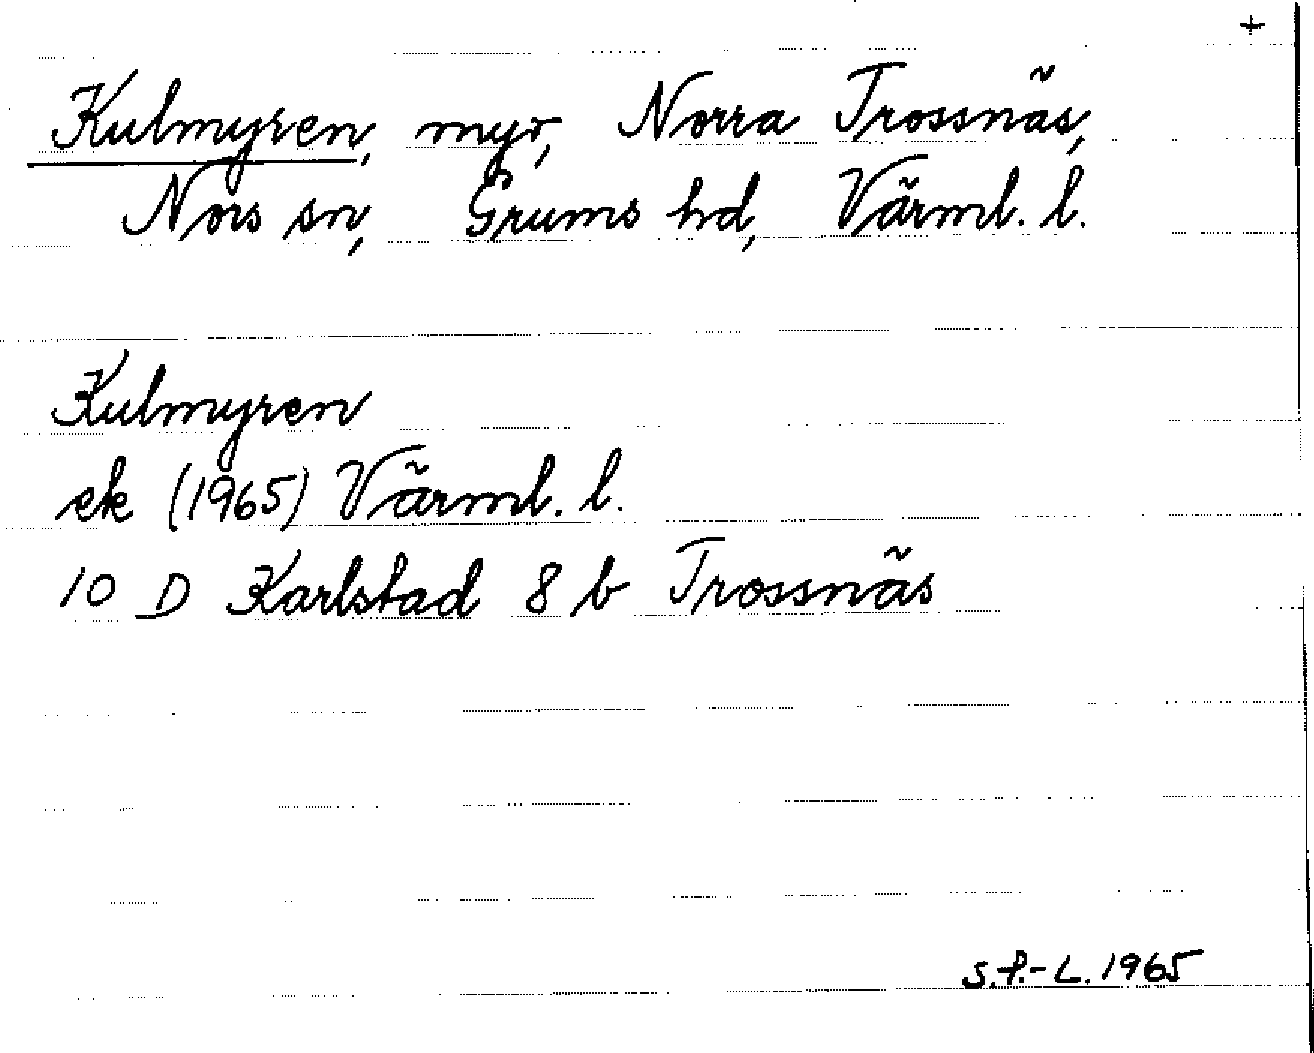 +
Kulmyren, myr, Norra Trossnäs,
Nors sn, Grums hd, Värml. l.
Kulmyren
ek (1965) Värml. l.
10 D Karlstad 8 b Trossnäs
S.P.-L. 1965